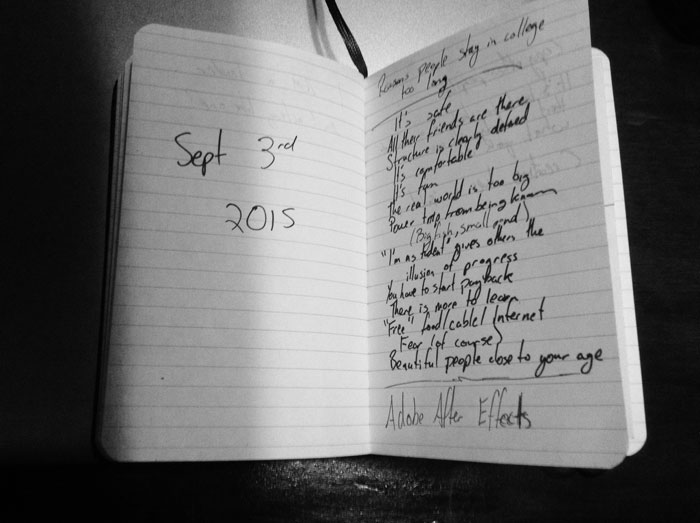 Sept 3rd
2015
Reasons people stay in college
too long
It's safe
All their friends are there
Structure is clearly defined
It's comfortable
It's fun
The real world is too big
Power trip from being known
(Big fish, small pond)
"I'm a student" gives others the
illusion of progress
You have to start payback
There is more to learn
"Free" food/cable/internet
Fear (of course)
Beautiful people close to your age
Adobe After Effects